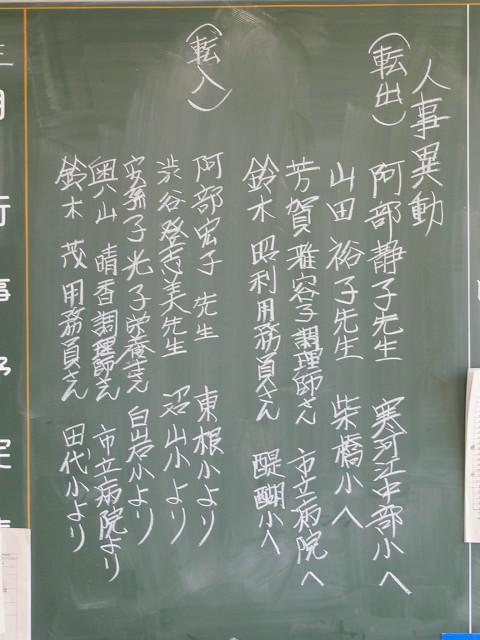 人事異動
(転出) 阿部静子先生 寒河江中部小へ
山田裕子先生 柴橋小へ
芳賀雅容子調理師さん 市立病院へ
鈴木昭利用務員さん 醍醐小へ
(転入)
阿部宏子先生 東根小より
渋谷登志美先生 沼山小より
安孫子光子栄養士さん 白岩小より
奥山晴香調理師さん 市立病院より
鈴木茂用務員さん 田代小より
行事予定